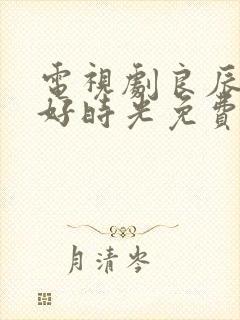 電視劇良辰
好時光免費
月清岑